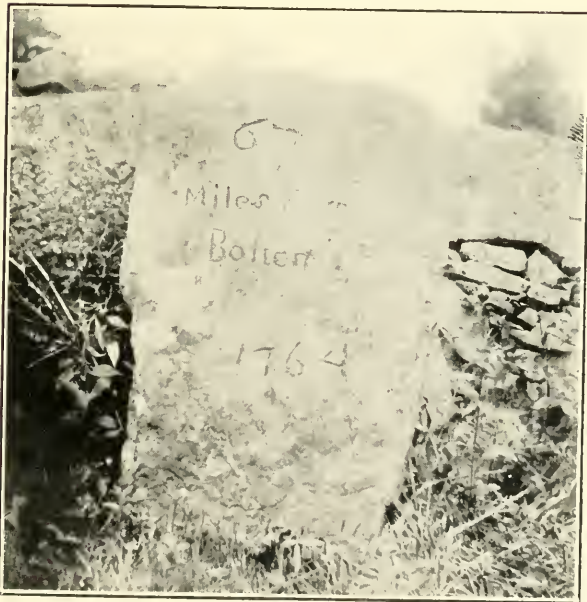 67
Miles
Boston
1764